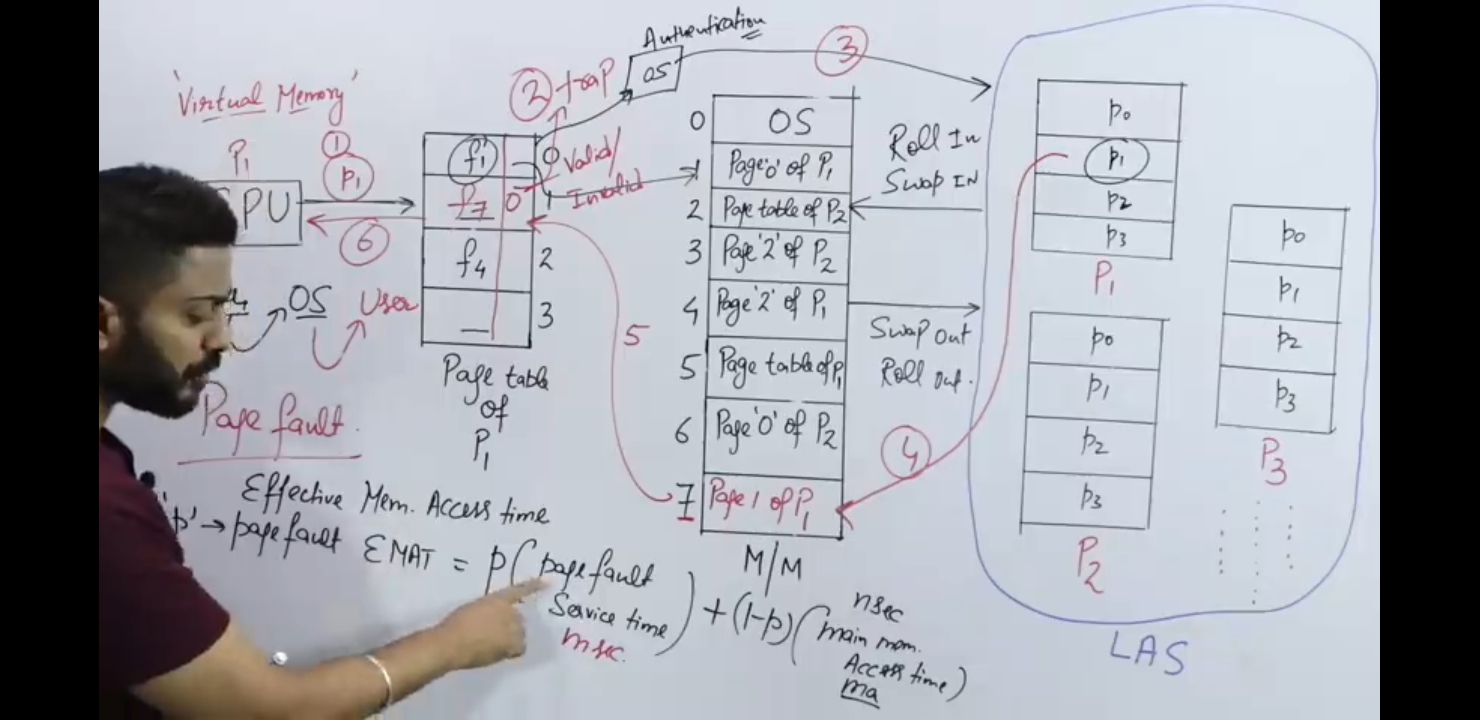 'Virtual Memory'
P1
①
p1
PU
⑥
OS
User
Page fault.
② trap
Authentication
OS
③
f1 0
f7 0 1
f4 2
— 3
Valid/
Invalid
Page table
of
P1
5
0 OS
1 Page '0' of P1
2 Page table of P2
3 Page '2' of P2
4 Page '2' of P1
5 Page table of P1
6 Page '0' of P2
7 Page 1 of P1
M/M
Roll In
Swap IN
Swap Out
Roll out.
④
p0
p1
p2
p3
P1
p0
p1
p2
p3
P2
p0
p1
p2
p3
P3
LAS
Effective Mem. Access time
'p' → page fault
EMAT = p(page fault
Service time)
msec.
+ (1-p)(main mem.
nsec
Access time)
ma